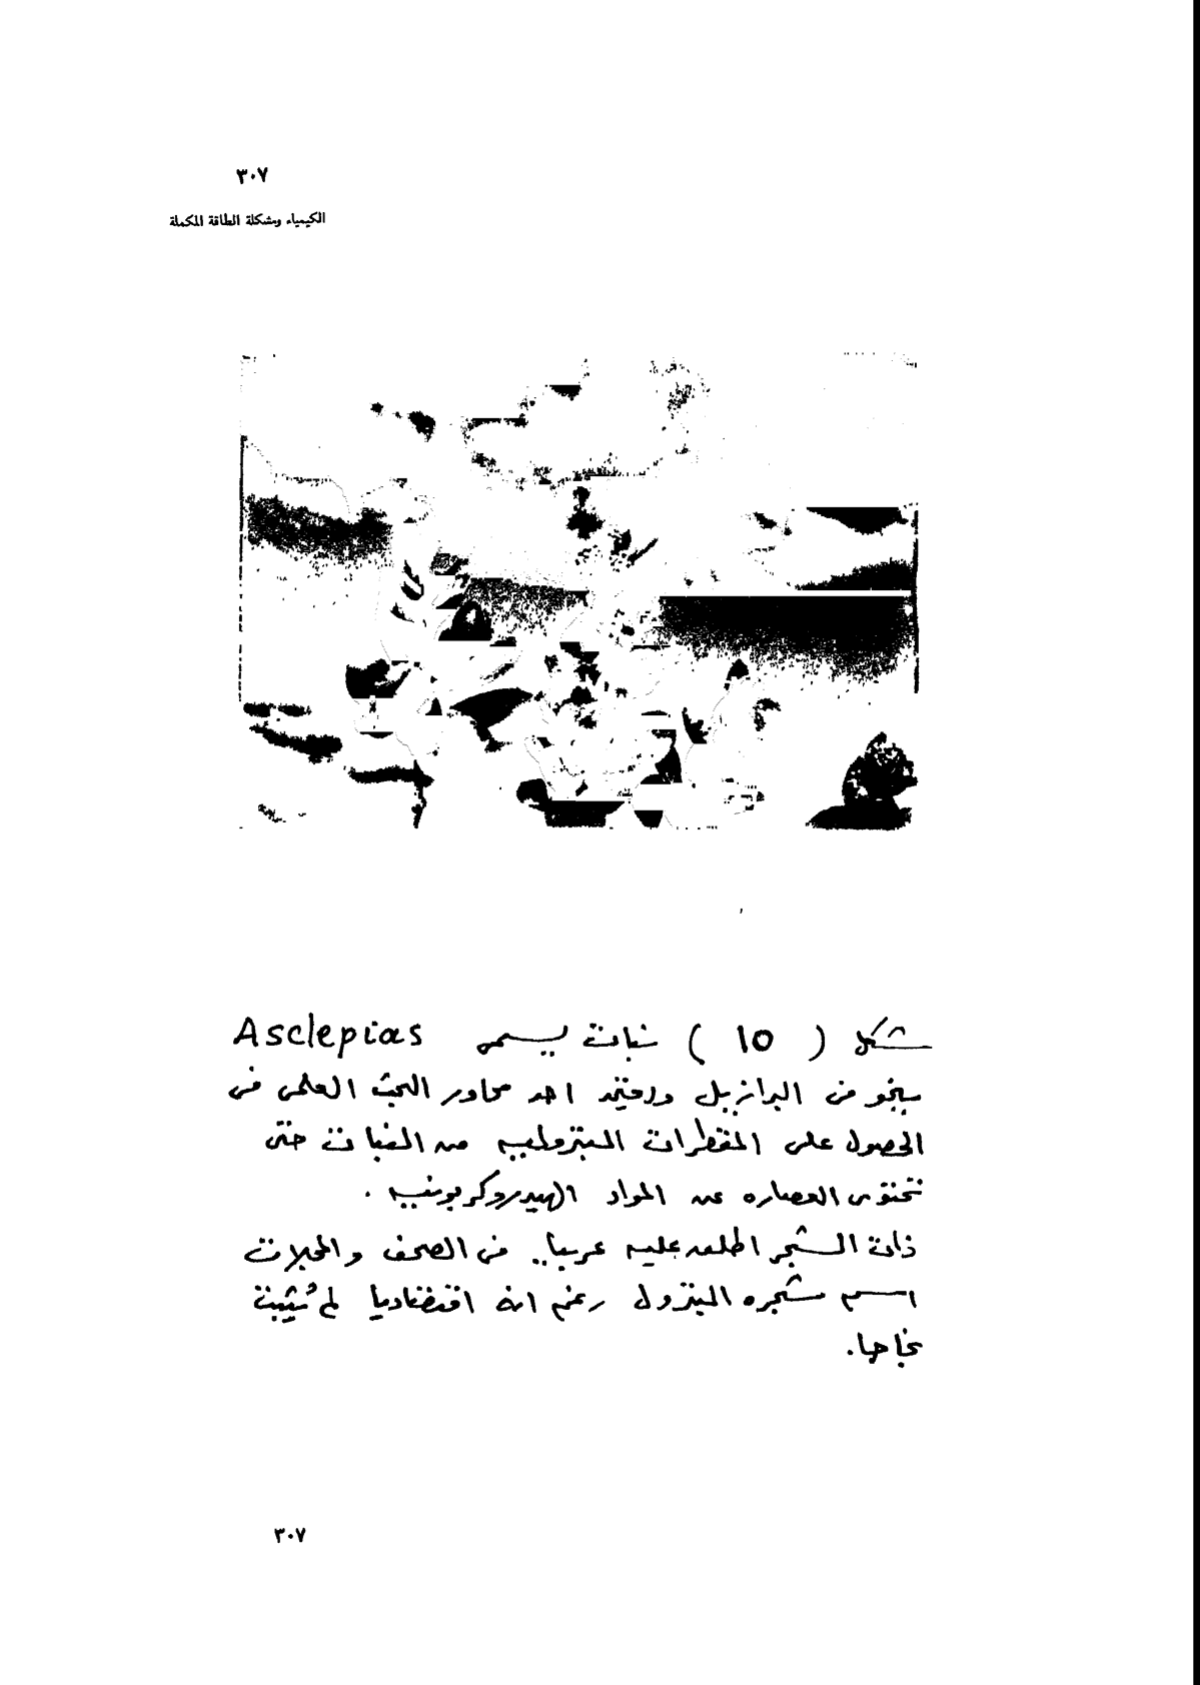 ٣٠٧
الكيمياء ومشكلة الطاقة المكملة
شكل ( 10 ) نبات يسمى Asclepias
ينمو فى البرازيل احد محاور البحث العلمى فى
الحصول على المقطرات البترولية من النبات حتى
تحتوى العصاره عن المواد الهيدروكربونيه .
ذات الشجر اطلق عليه عربيا.. فى الصحف والمجلات
اسم شجره البترول رغم انه اقتصاديا لم تُثبت
نجاحها.
٣٠٧